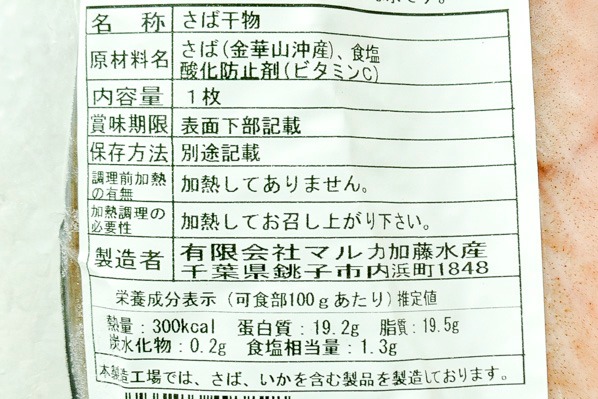 名称 さば干物
原材料名 さば(金華山沖産)、食塩
酸化防止剤(ビタミンC)
内容量 1枚
賞味期限 表面下部記載
保存方法 別途記載
調理前加熱の有無 加熱してありません。
加熱調理の必要性 加熱してお召し上がり下さい。
製造者 有限会社マルカ加藤水産
千葉県銚子市内浜町1848
栄養成分表示(可食部100gあたり)推定値
熱量:300kcal 蛋白質:19.2g 脂質:19.5g
炭水化物:0.2g 食塩相当量:1.3g
本製造工場では、さば、いかを含む製品を製造しております。